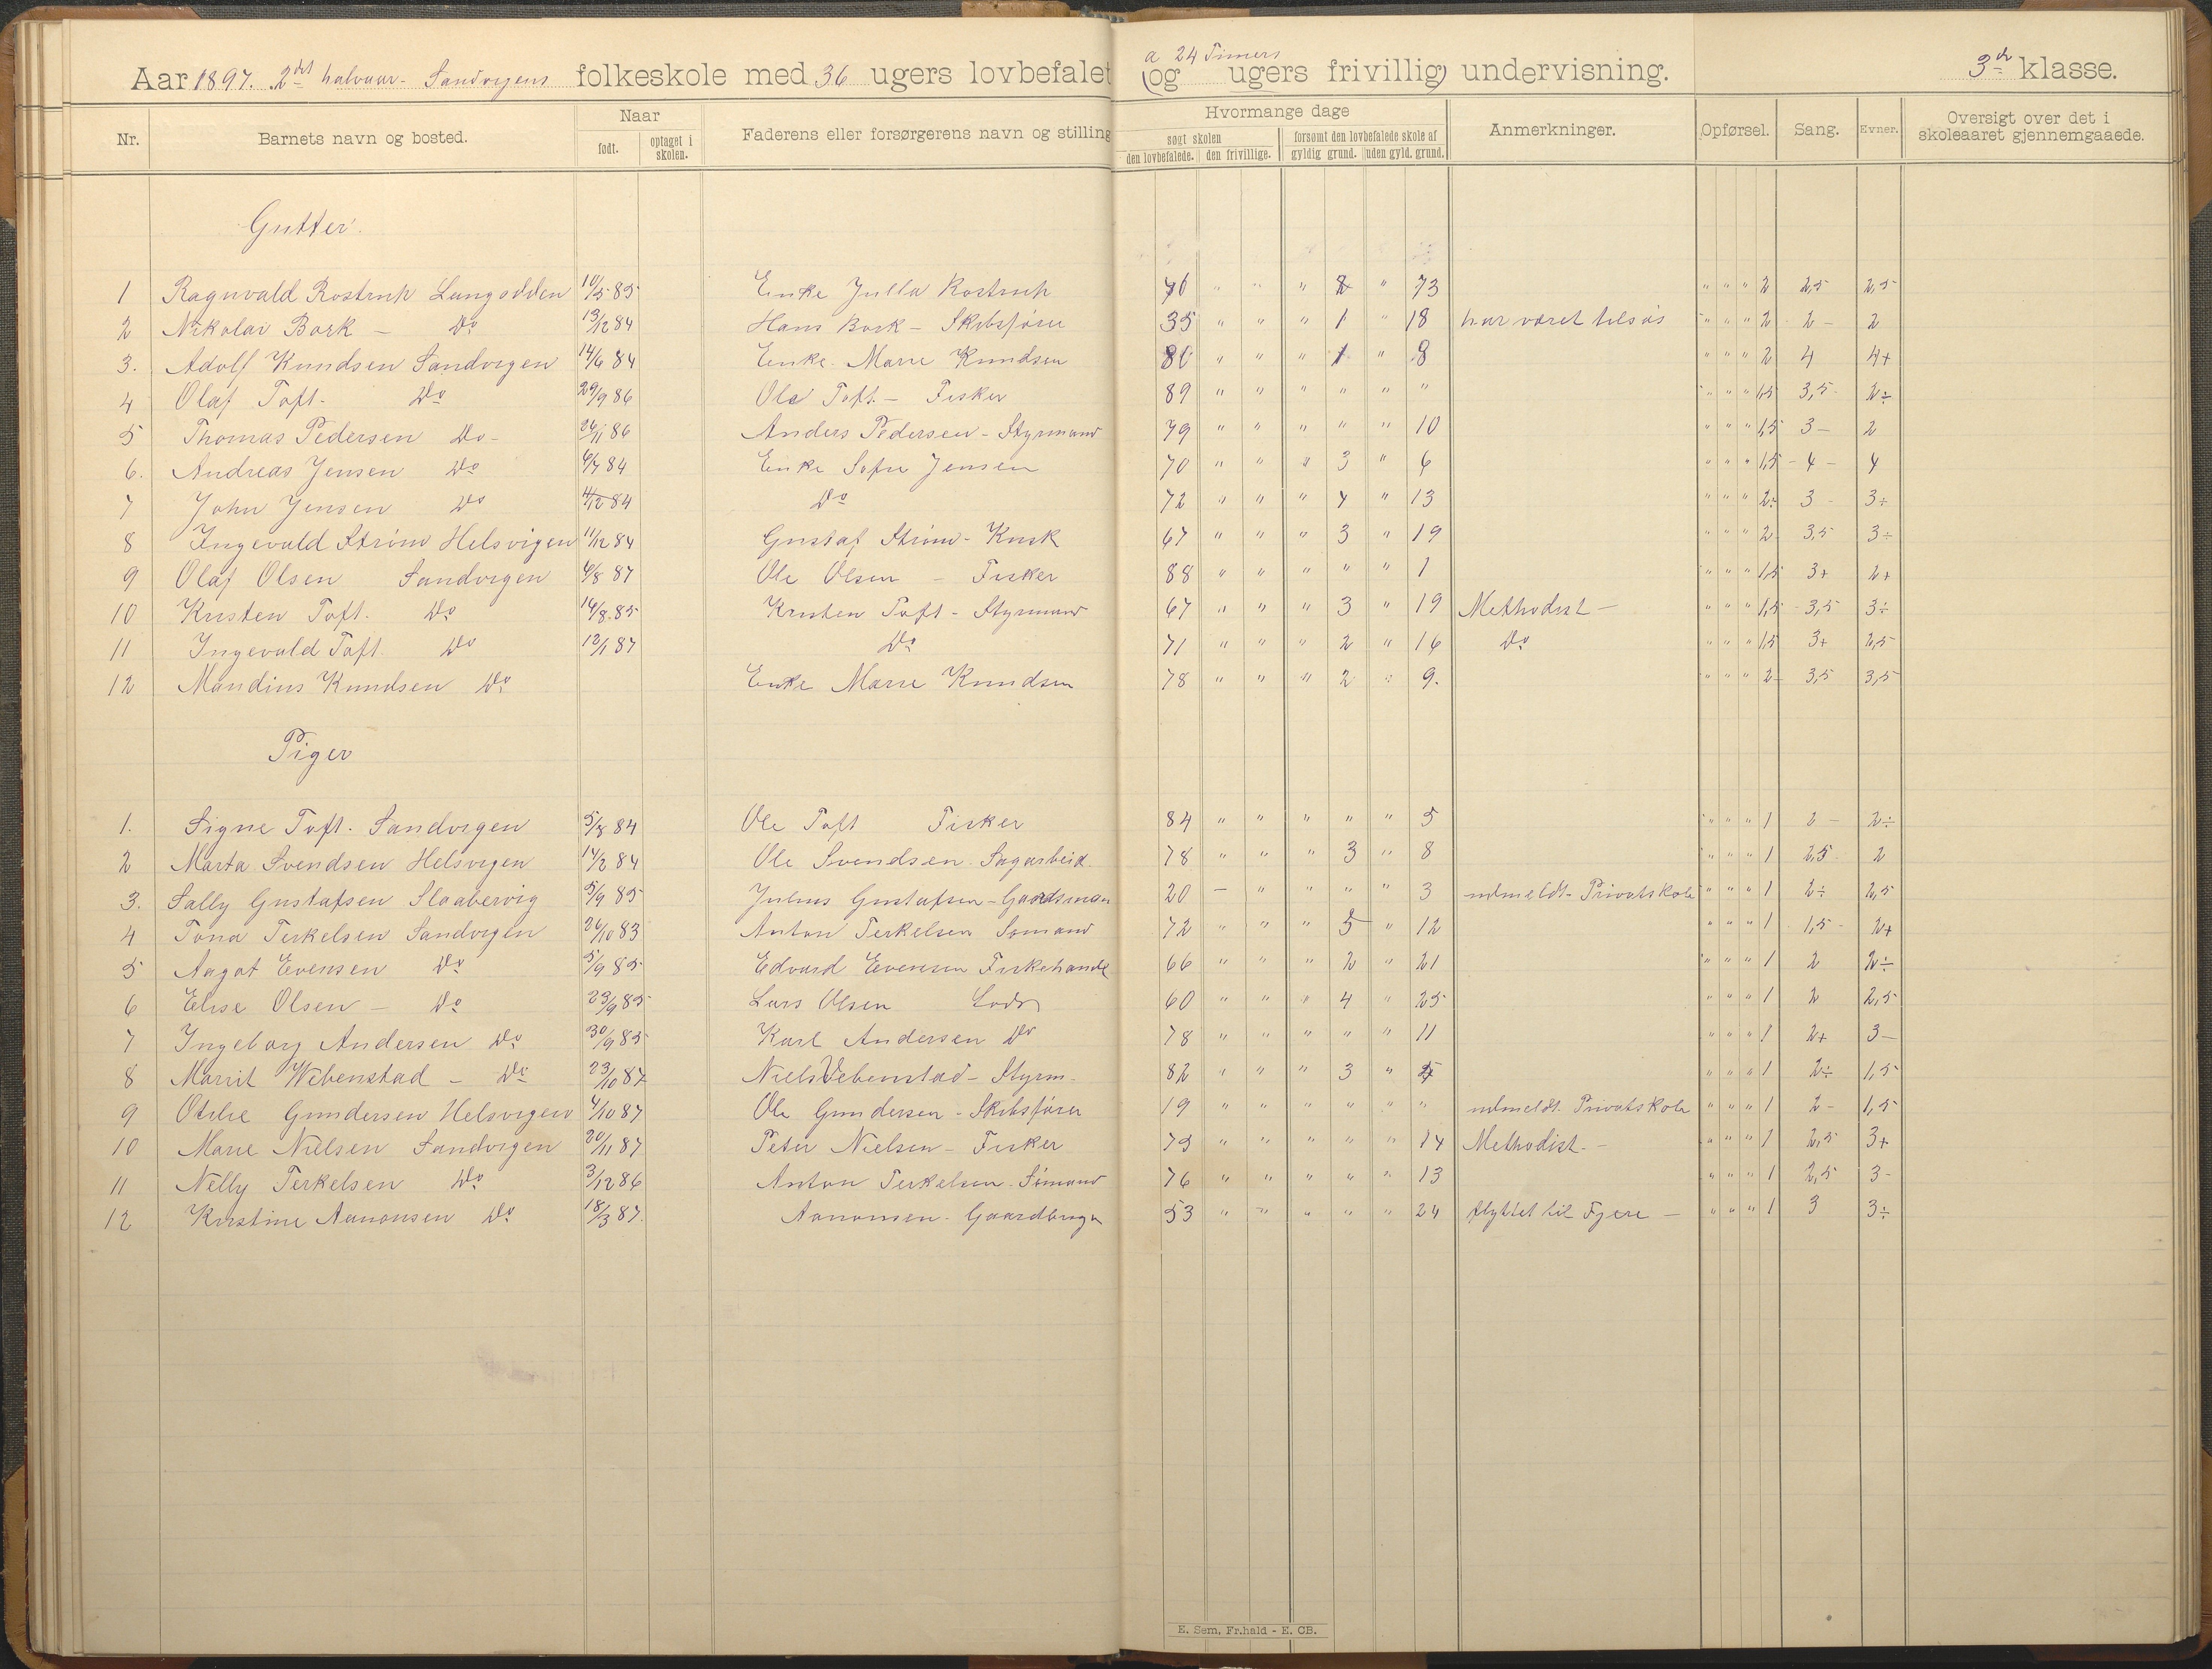 Aar 1897. 2det halvaar - Sandvigens folkeskole med 36 ugers lovbefalet (og a 24 Timers ugers frivillig) undervisning. 3die klasse.
Nr. Barnets navn og bosted. Naar født. optaget i skolen. Faderens eller forsørgerens navn og stilling Hvormange dage søgt skolen den lovbefalede. den frivillige. forsømt den lovbefalede skole af gyldig grund. uden gyld. grund. Anmerkninger. Opførsel. Sang. Evner. Oversigt over det i skoleaaret gjennemgaaede.
Gutter.
1 Ragnvald Rostrup Langodden 10/5 85 Enke Julla Rostrup " " " " 73 " " " 2 2,5 2,5
2 Nikolai Bork - Do 13/12 84 Hans Bork - Skibsfører 35 " " " 1 " 18 har været tilsøs " " " 2 2 - 2
3. Adolf Knudsen Sandvigen 14/6 84 Enke Marie Knudsen 80 " " " 1 " 8 " " " 2 4 4+
4 Olaf Toft - Do 29/9 86 Ole Toft - Fisker 89 " " " " " " " " " 1,5 3,5 - 2÷
5 Thomas Pedersen Do - 26/11 86 Anders Pedersen - Styrmand 79 " " " " " 10 " " " 1,5 3 - 2
6. Andreas Jensen Do 6/7 84 Enke Sofie Jensen 70 " " " 3 " 6 " " " 1,5 - 4 - 4
7 John Jensen Do 4/12 84 Do 72 " " " 4 " 13 " " " 2÷ 3 - 3÷
8 Ingevald Strøm Helsvigen 11/12 84 Gustaf Strøm - Kusk 67 " " " 3 " 19 " " " 2 3,5 3÷
9 Olaf Olsen Sandvigen 4/8 87 Ole Olsen - Fisker 88 " " " " " 1 " " " 1,5 3+ 2+
10 Kristen Toft. Do 14/8 85 Kristen Toft - Styrmand 67 " " " 3 " 19 Methodist - " " " 1,5 - 3,5 3÷
11 Ingevald Toft. Do 12/1 87 Do 71 " " " 2 " 16 Do " " " 1,5 3+ 2,5
12 Mandius Knudsen Do Enke Marie Knudsen 78 " " " 2 " 9. " " " 2 3,5 3,5
Piger
1. Signe Toft. Sandvigen 5/8 84 Ole Toft Fisker 84 " " " " " 5 " " " 1 2 - 2÷
2 Marta Svendsen Helsvigen 14/2 84 Ole Svendsen - Sagarbeid. 78 " " " 3 " 8 " " " 1 2,5 - 2
3. Sally Gustafsen Slaabervig 5/9 85 Julius Gustafsen - Gaardsman 20 - " " " " 3 udmeldt - Privatskole " " " 1 2÷ 2,5
4 Tona Terkelsen Sandvigen 20/10 83 Anton Terkelsen Sømand 72 " " " 5 " 12 " " " 1 1,5 - 2+
5 Aagot Evensen Do 5/9 85 Edvard Evensen Fiskehandl 66 " " " 2 " 21 " " " 1 2 2÷
6 Elise Olsen - Do 23/9 85 Lars Olsen Lods 60 " " " 4 " 25 " " " 1 2 2,5
7 Ingeborg Andersen Do 30/9 85 Karl Andersen Do 78 " " " " " 11 " " " 1 2+ 3 -
8 Marrit Webenstad - Do 23/10 87 Niels Vebenstad - Styrm - 82 " " " 3 " " " " 1 2÷ 1,5
9 Otilie Gundersen Helsvigen 4/10 87 Ole Gundersen - Skibsfører 19 " " " " " " udmeldt. Privatskole " " " 1 2 - 1,5
10 Marie Nielsen Sandvigen 20/11 87 Peter Nielsen - Fisker 75 " " " " " 14 Methodist. - " " " 1 2,5 3+
11 Nelly Terkelsen Do 3/12 86 Anton Terkelsen - Sømand 76 " " " " " 13 " " " 1 2,5 3 -
12 Kristine Aanonsen Do 18/3 87. Aanonsen - Gaardbruger 53 " " " " " 24 flyttet til Fjere - " " " 1 3 3÷
E. Sem, Fr.hald - E. CB.